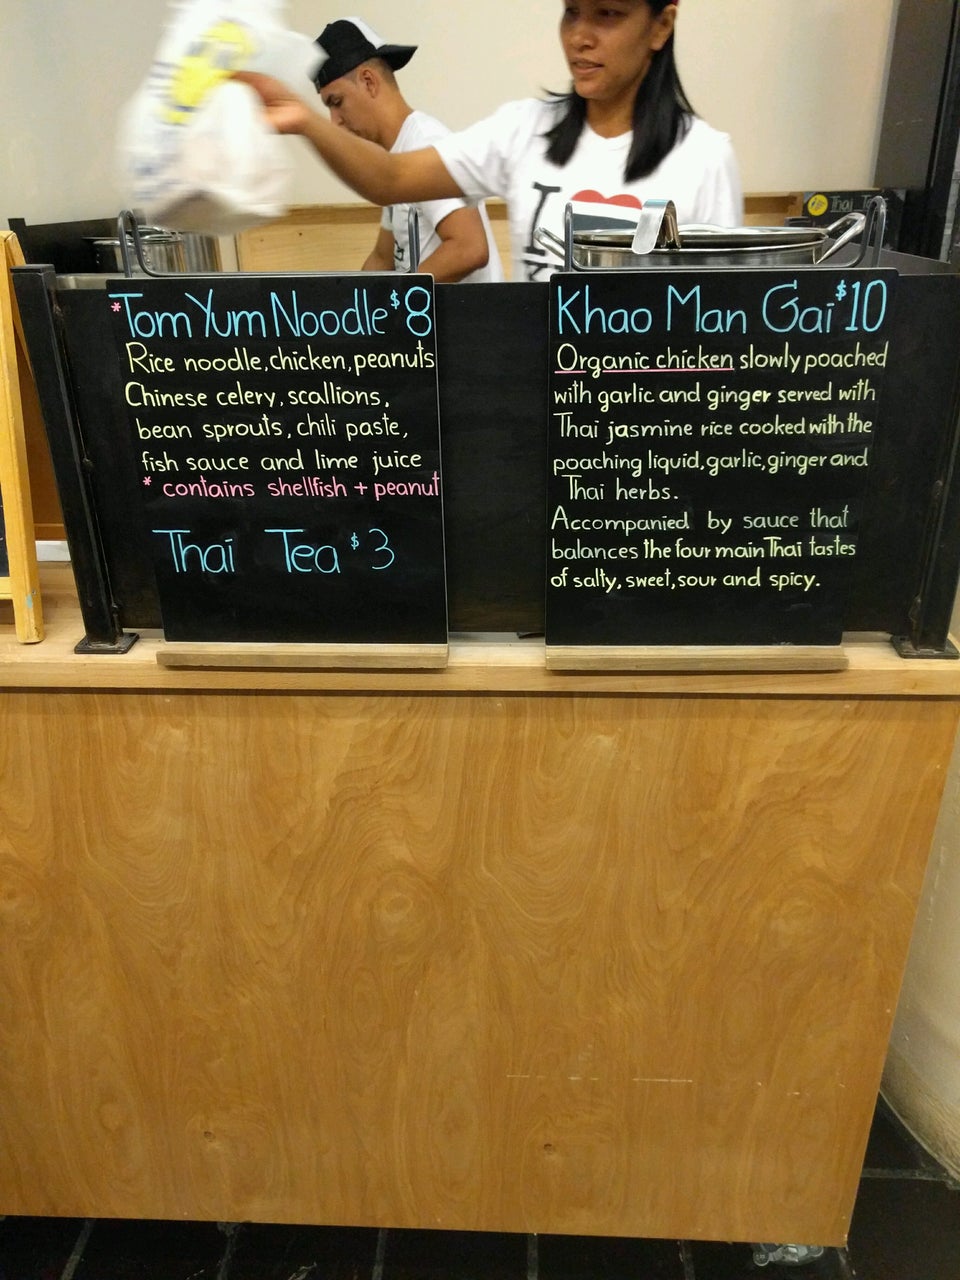 *Tom Yum Noodle $8
Rice noodle, chicken, peanuts
Chinese celery, scallions,
bean sprouts, chili paste,
fish sauce and lime juice
* contains shellfish + peanut
Thai Tea $3
Khao Man Gai $10
Organic chicken slowly poached
with garlic and ginger served with
Thai jasmine rice cooked with the
poaching liquid, garlic, ginger and
Thai herbs.
Accompanied by sauce that
balances the four main Thai tastes
of salty, sweet, sour and spicy.
I
Thai